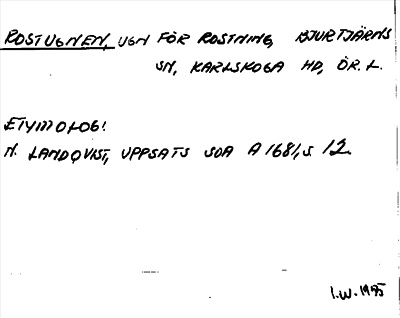 ROSTUGNEN, UGN FÖR ROSTNING, BJURTJÄRNS
SN, KARLSKOGA HD, ÖR. L.
ETYMOLOGI
N. LANDQVIST, UPPSATS SOA A 1681, S 12.
I.W. 1995